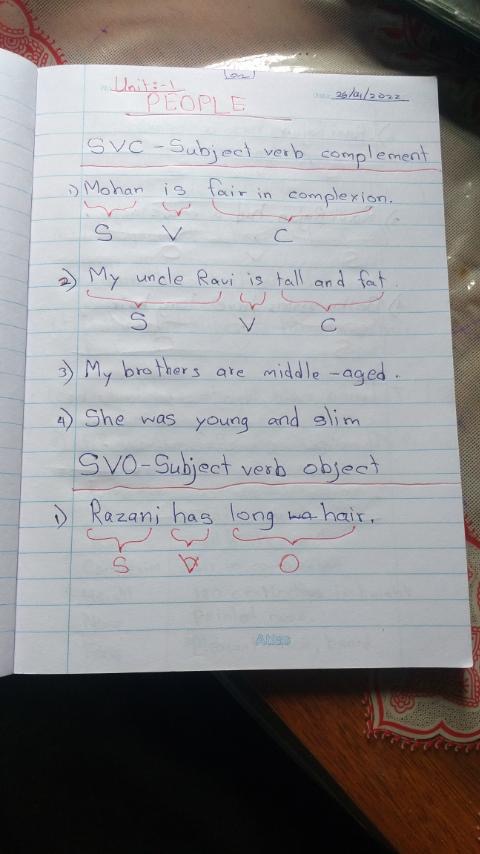 [02]
Unit:-1
26/01/2022
PEOPLE
SVC - Subject verb complement
1) Mohan is fair in complexion.
S V C
2) My uncle Ravi is tall and fat.
S V C
3) My brothers are middle-aged.
4) She was young and slim
SVO-Subject verb object
1) Razani has long hair.
S V O
Atlas